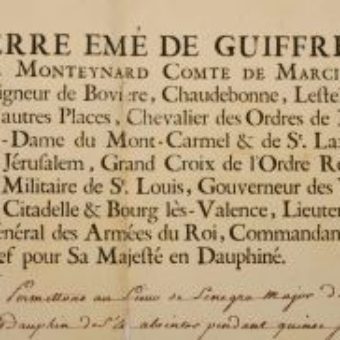 ERRE EMÉ DE GUIFFRE
MONTEYNARD COMTE DE MARCI
igneur de Boviere, Chaudebonne, Lestel
autres Places, Chevalier des Ordres de
-Dame du Mont-Carmel & de St. La
Jérusalem, Grand Croix de l'Ordre Ro
Militaire de St. Louis, Gouverneur des
Citadelle & Bourg lès-Valence, Lieuten
énéral des Armées du Roi, Commandan
ef pour Sa Majesté en Dauphiné.
Permettons au Sieur de Senegra Major d
Dauphin de absenter pendant quinse